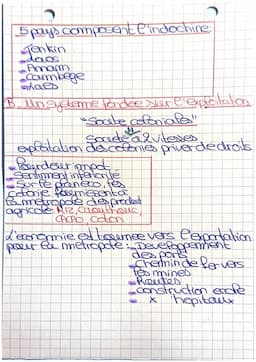 5 pays composent l'indochine
- Tonkin
- Laos
- Annam
- Camboge
- Laos
B - Un systeme fondée sur l'exploitation
"Société coloniales"
Société a 2 vitesses
exploitation des colonies priver de droits
- Lourdeur impot
- Sentiment inferiorité
Colonie fournissent a
la metropole des produit
agricole Riz, Caoutchouc,
Café, coton
L'economie est tournee vers l'exportation
pour la metropole : - Developpement
des ports
- Chemin de fer vers
les mines
- Routes
- construction ecole
x hopitaux